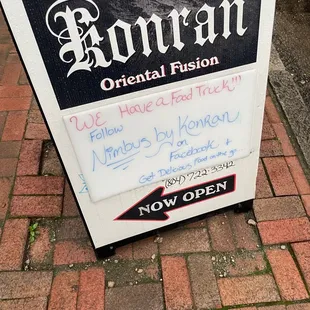 Konran
Oriental Fusion
WE Have a Food Truck!!!
Follow
Nimbus by Konran
on
Facebook +
Get Delicious Food on the go
(804) 722-3342
NOW OPEN